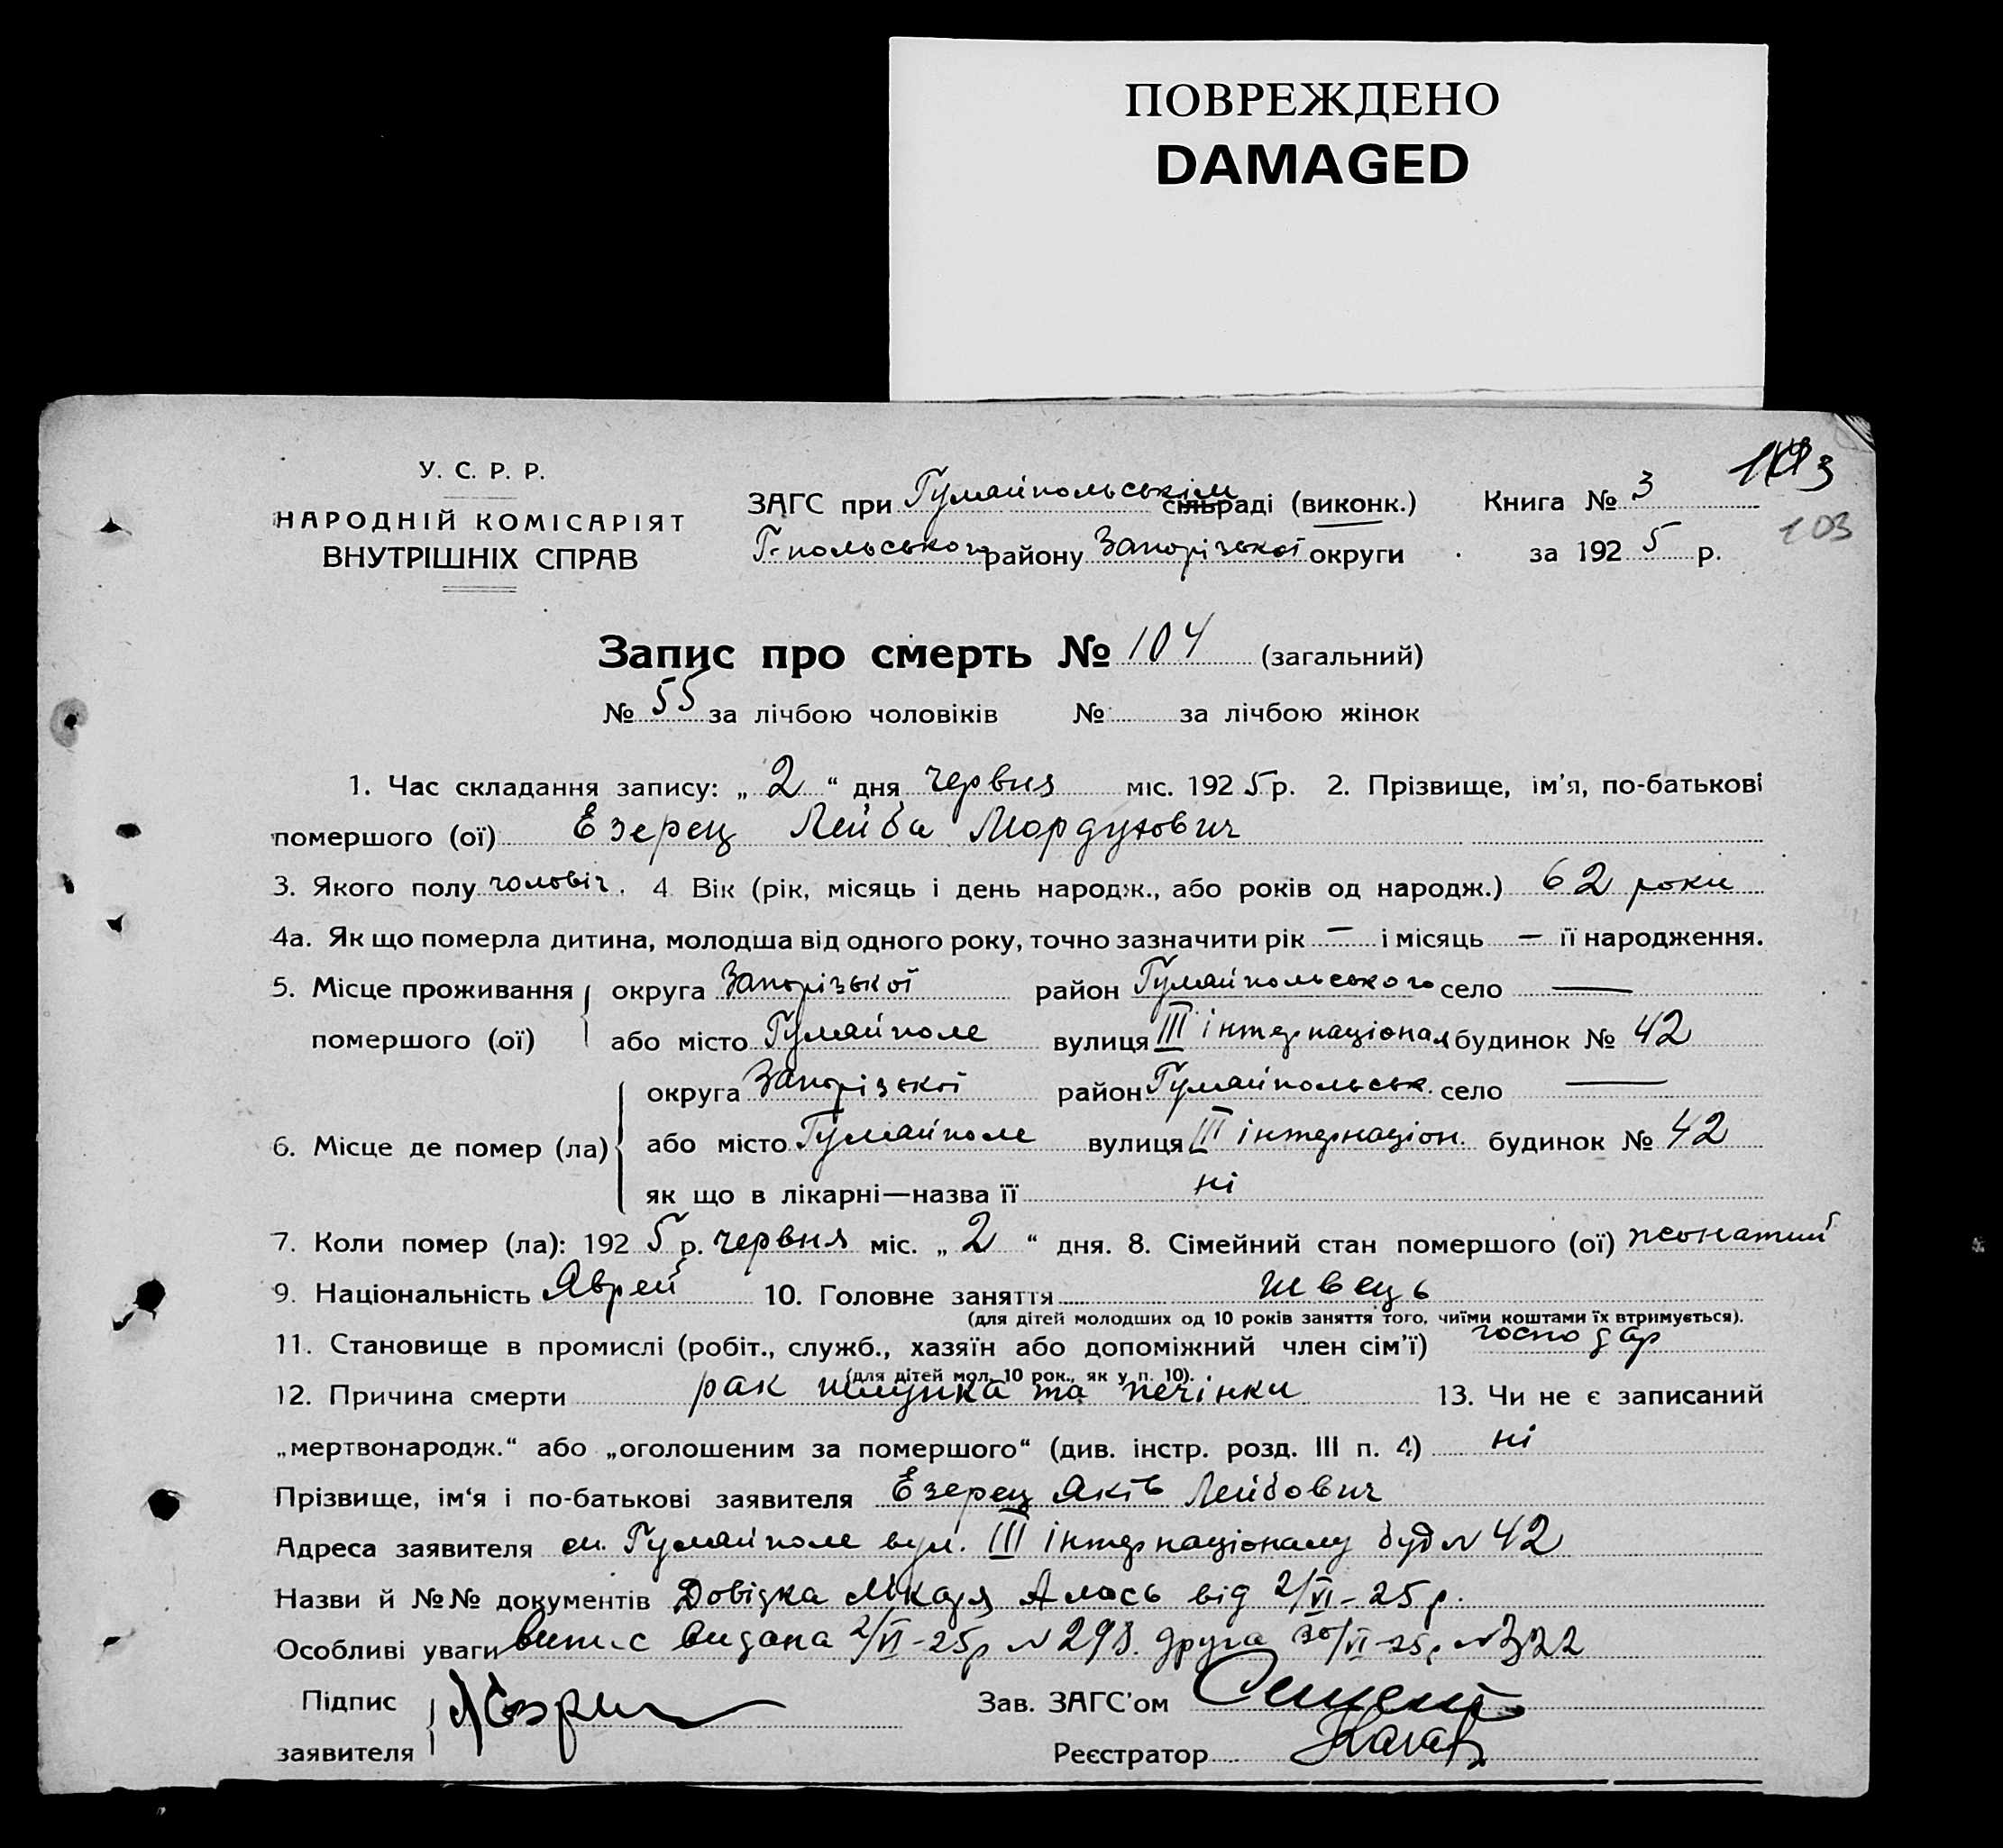 ПОВРЕЖДЕНО
DAMAGED
У. С. Р. Р.
НАРОДНІЙ КОМІСАРІЯТ
ВНУТРІШНІХ СПРАВ
ЗАГС при Гуляйпольськім сільраді (виконк.) Книга № 3
103
Г-польського району Запорізької округи за 1925 р.
Запис про смерть № 104 (загальний)
№ 55 за лічбою чоловіків № за лічбою жінок
1. Час складання запису: „ 2 “ дня червня міс. 1925 р. 2. Прізвище, ім’я, по-батькові
помершого (ої) Езерец Лейба Мордухович
3. Якого полу чоловіч. 4 Вік (рік, місяць і день народж., або років од народж.) 62 роки
4а. Як що померла дитина, молодша від одного року, точно зазначити рік — і місяць — її народження.
5. Місце проживання округа Запорізької район Гуляйпольського село —
помершого (ої) або місто Гуляйполе вулиця III інтернаціонал будинок № 42
округа Запорізької район Гуляйпольськ. село —
6. Місце де помер (ла) або місто Гуляйполе вулиця III інтернаціон. будинок № 42
як що в лікарні—назва її ні
7. Коли помер (ла): 1925 р. червня міс. „ 2 “ дня. 8. Сімейний стан помершого (ої) жонатий
9. Національність Яврей 10. Головне заняття швець
(для дітей молодших од 10 років заняття того, чиїми коштами їх втримується).
11. Становище в промислі (робіт., служб., хазяїн або допоміжний член сім’ї) господар
(для дітей мол. 10 рок., як у п. 10).
12. Причина смерти рак шлунка та печінки 13. Чи не є записаний
„мертвонародж.“ або „оголошеним за помершого“ (див. інстр. розд. III п. 4) ні
Прізвище, ім‘я і по-батькові заявителя Езерец Яків Лейбович
Адреса заявителя см. Гуляйполе вул. III інтернаціоналу буд N 42
Назви й №№ документів Довідка лікаря Алось від 2/VI-25 р.
Особливі уваги Випис видана 2/VI-25р N 298. друга 30/VI-25р N 322
Підпис
заявителя
Зав. ЗАГС’ом
Реєстратор